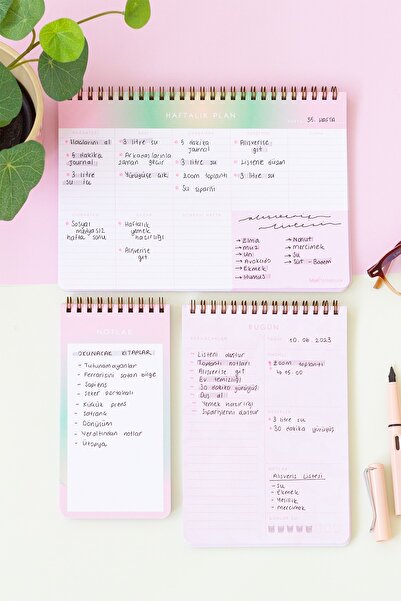 HAFTALIK PLAN
35. HAFTA
İlaçlarını al
5 dakika
journal
3 litre
su iç
3 litre su
Arkadaşlarınla
zaman geçir
Yürüyüşe çık
5 dakika
journal
3 litre su
zoom toplantı
Su siparişi
Alışverişe
git
Listene düzen
3 litre su
Sosyal
medyasız
hafta sonu
Haftalık
yemek
hazırlığı
Alışverişe
git
alışveriş
listesi
→ Elma
→ muzi
→ Un
→ Avokado
→ Ekmek
→ Humus
→ Nohut
→ mercimek
→ Su
→ Süt - Badem
NOTLAR
OKUNACAK KİTAPLAR
- Tutunamayanlar
- Ferrarisini satan bilge
- Sapiens
- Şeker portakalı
- Küçük prens
- Satranç
- Dönüşüm
- Yeraltından notlar
- Ütopya
BUGÜN
10.06.2023
- Listeni oluştur
- Toplantı notları
- Alışverişe git
- Ev temizliği
- 30 dakika yürüyüş
- Duş al
- Yemek hazırlığı
- Siparişlerini oluştur
zoom toplantı
15.00
3 litre su
30 dakika yürüyüş
Alışveriş listesi
- su
- ekmek
- Yeşillik
- mercimek